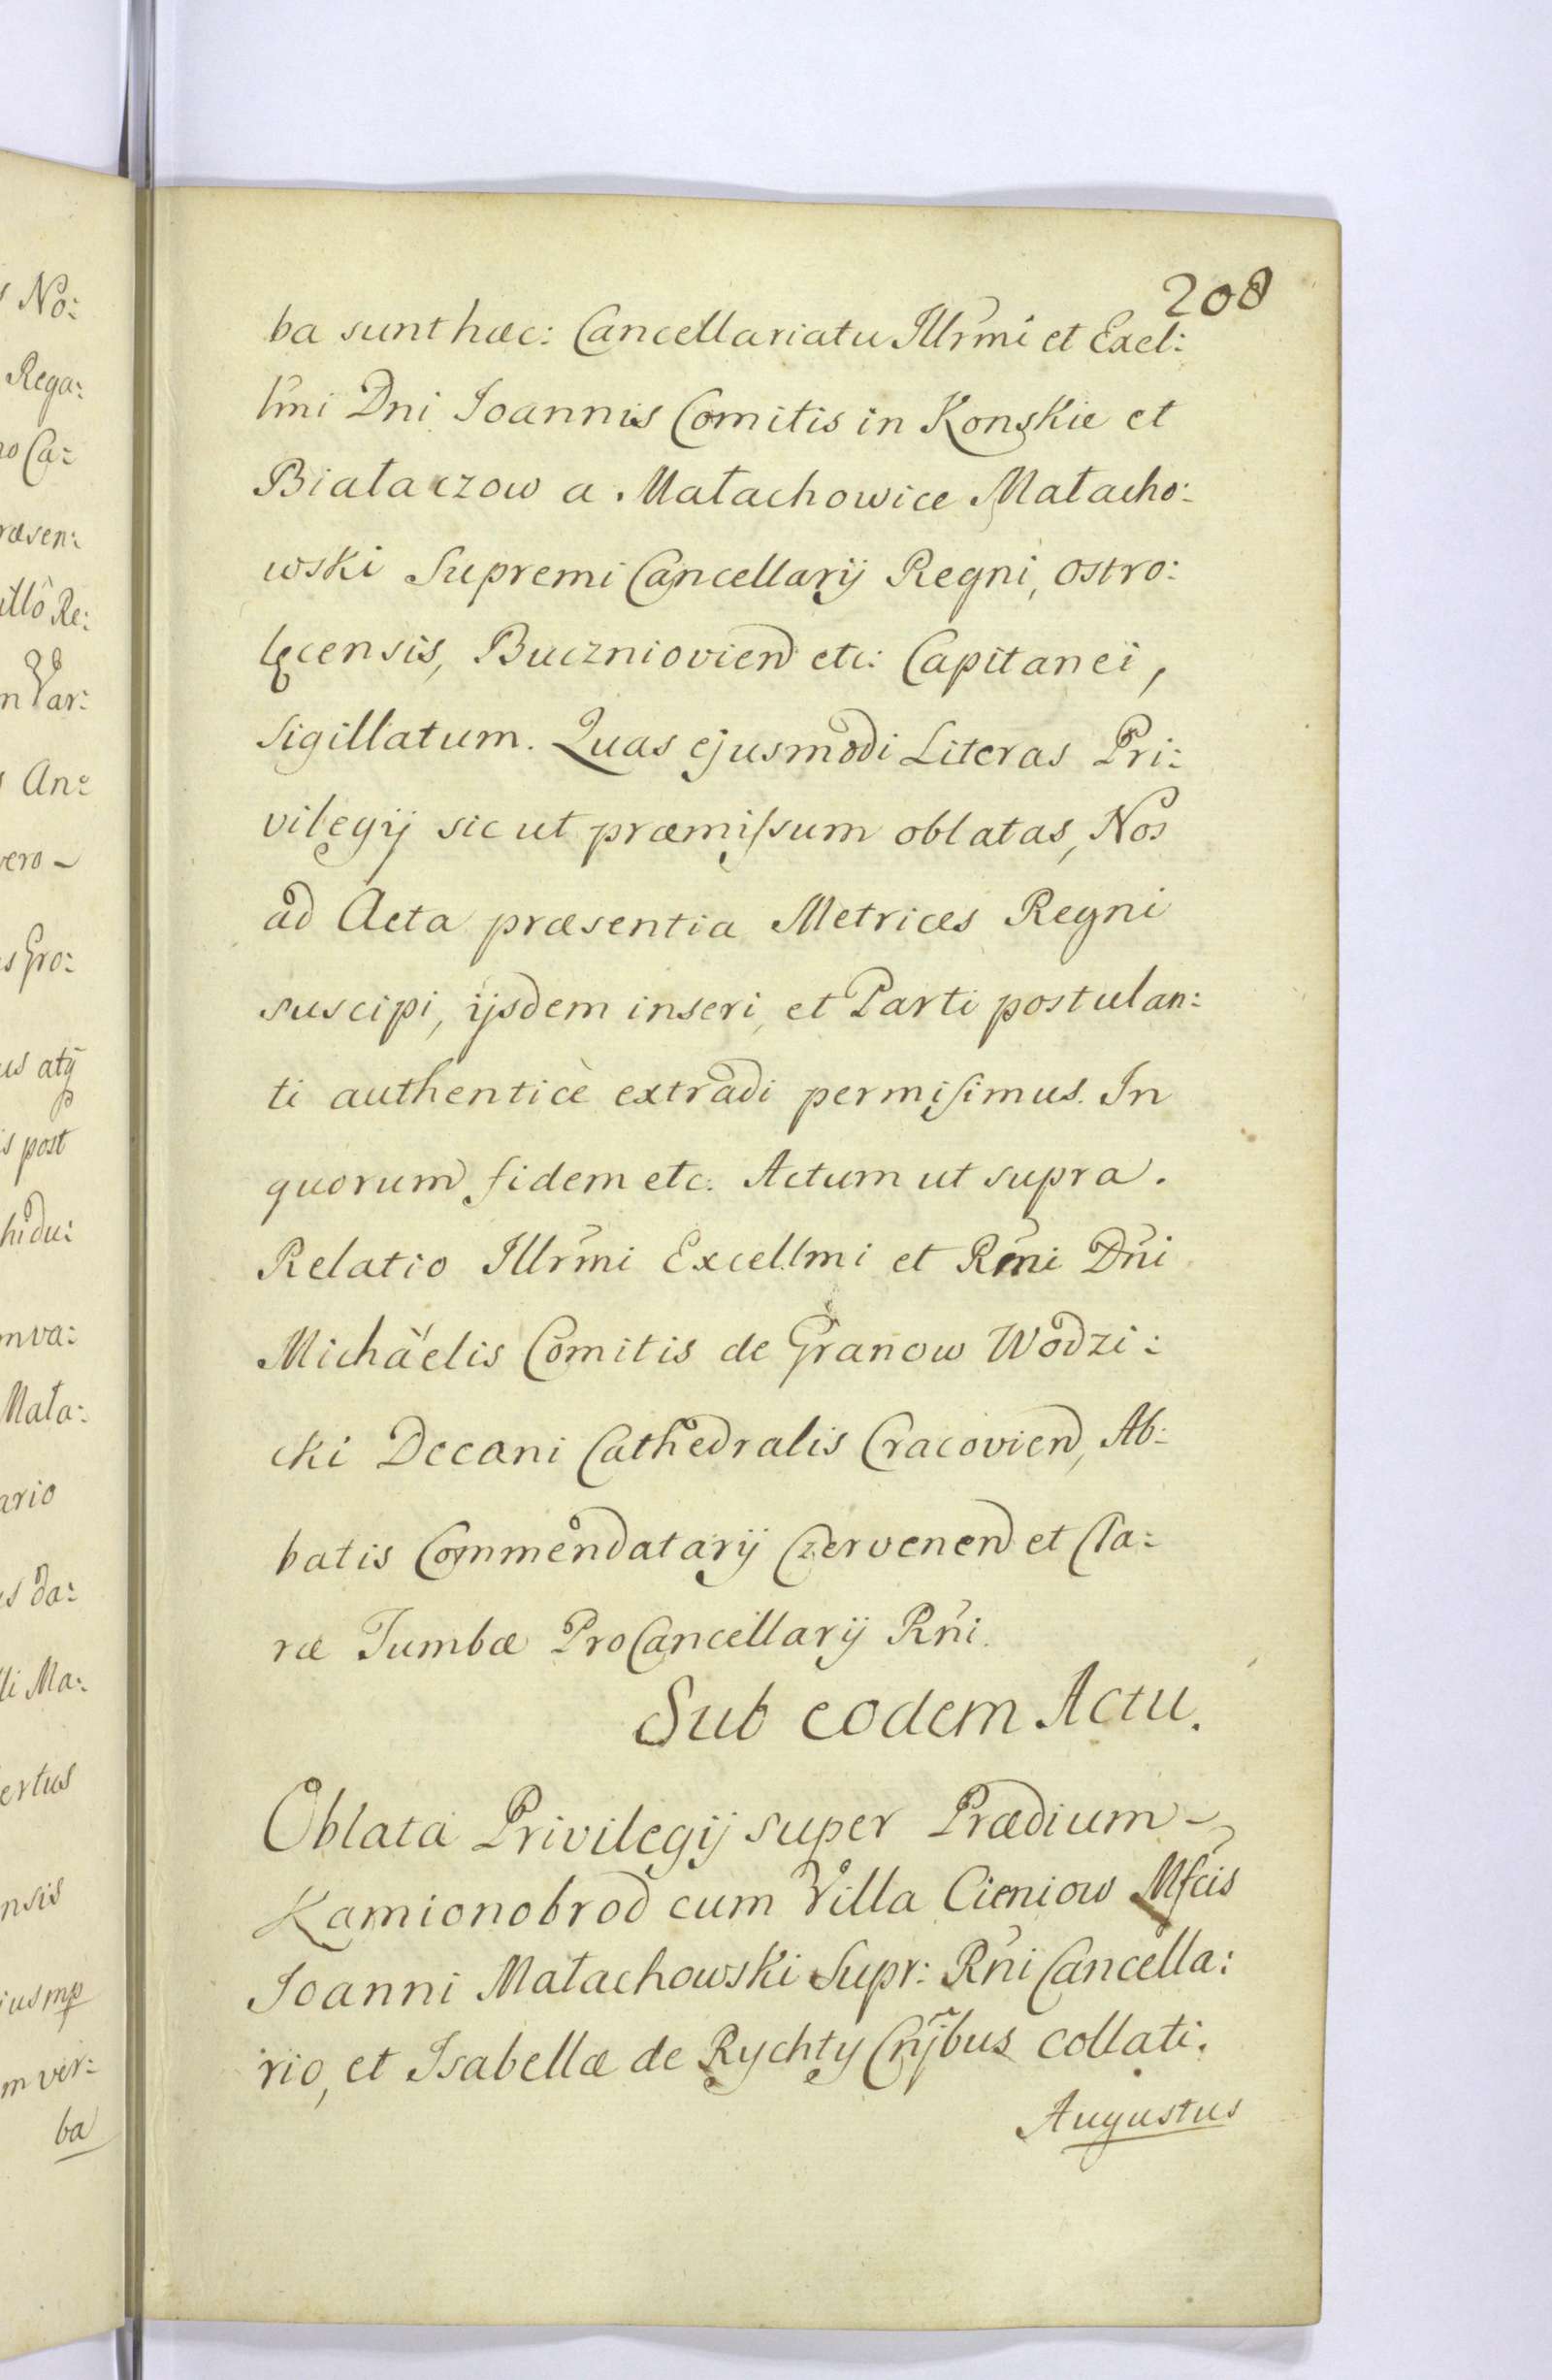 208
ba sunt hæc: Cancellariatu Illrmi et Excl:
lmi Dni Ioannis Comitis in Konskie et
Białaczow a Małachowice Małacho:
wski Supremi Cancellarij Regni, Ostro:
łęcensis, Buczniovien etc: Capitanei,
sigillatum. Quas ejusmodi Literas Pri:
vilegij sic ut præmissum oblatas, Nos
ad Acta præsentia Metrices Regni
suscipi, ijsdem inseri, et Parti postulan:
ti authenticè extradi permisimus. In
quorum fidem etc. Actum ut supra.
Relatio Illrmi Excellmi et Rmi Dni
Michäelis Comitis de Granow Wodzi:
cki Decani Cathedralis Cracovien, Ab:
batis Commendatarij Czervenen et Cla:
ræ Tumbæ ProCancellarij Rni.
Sub eodem Actu.
Oblata Privilegij super Prædium
Kamionobrod cum Villa Cieniow Mfcis
Joanni Małachowski Supr: Rni Cancella:
rio, et Isabellæ de Rychty Cnjbus collati.
Augustus
No:
Rega:
Ca:
Re:
Var:
An:
vero
Gro:
atq
post
Mała:
da:
Ma:
ver:
ba